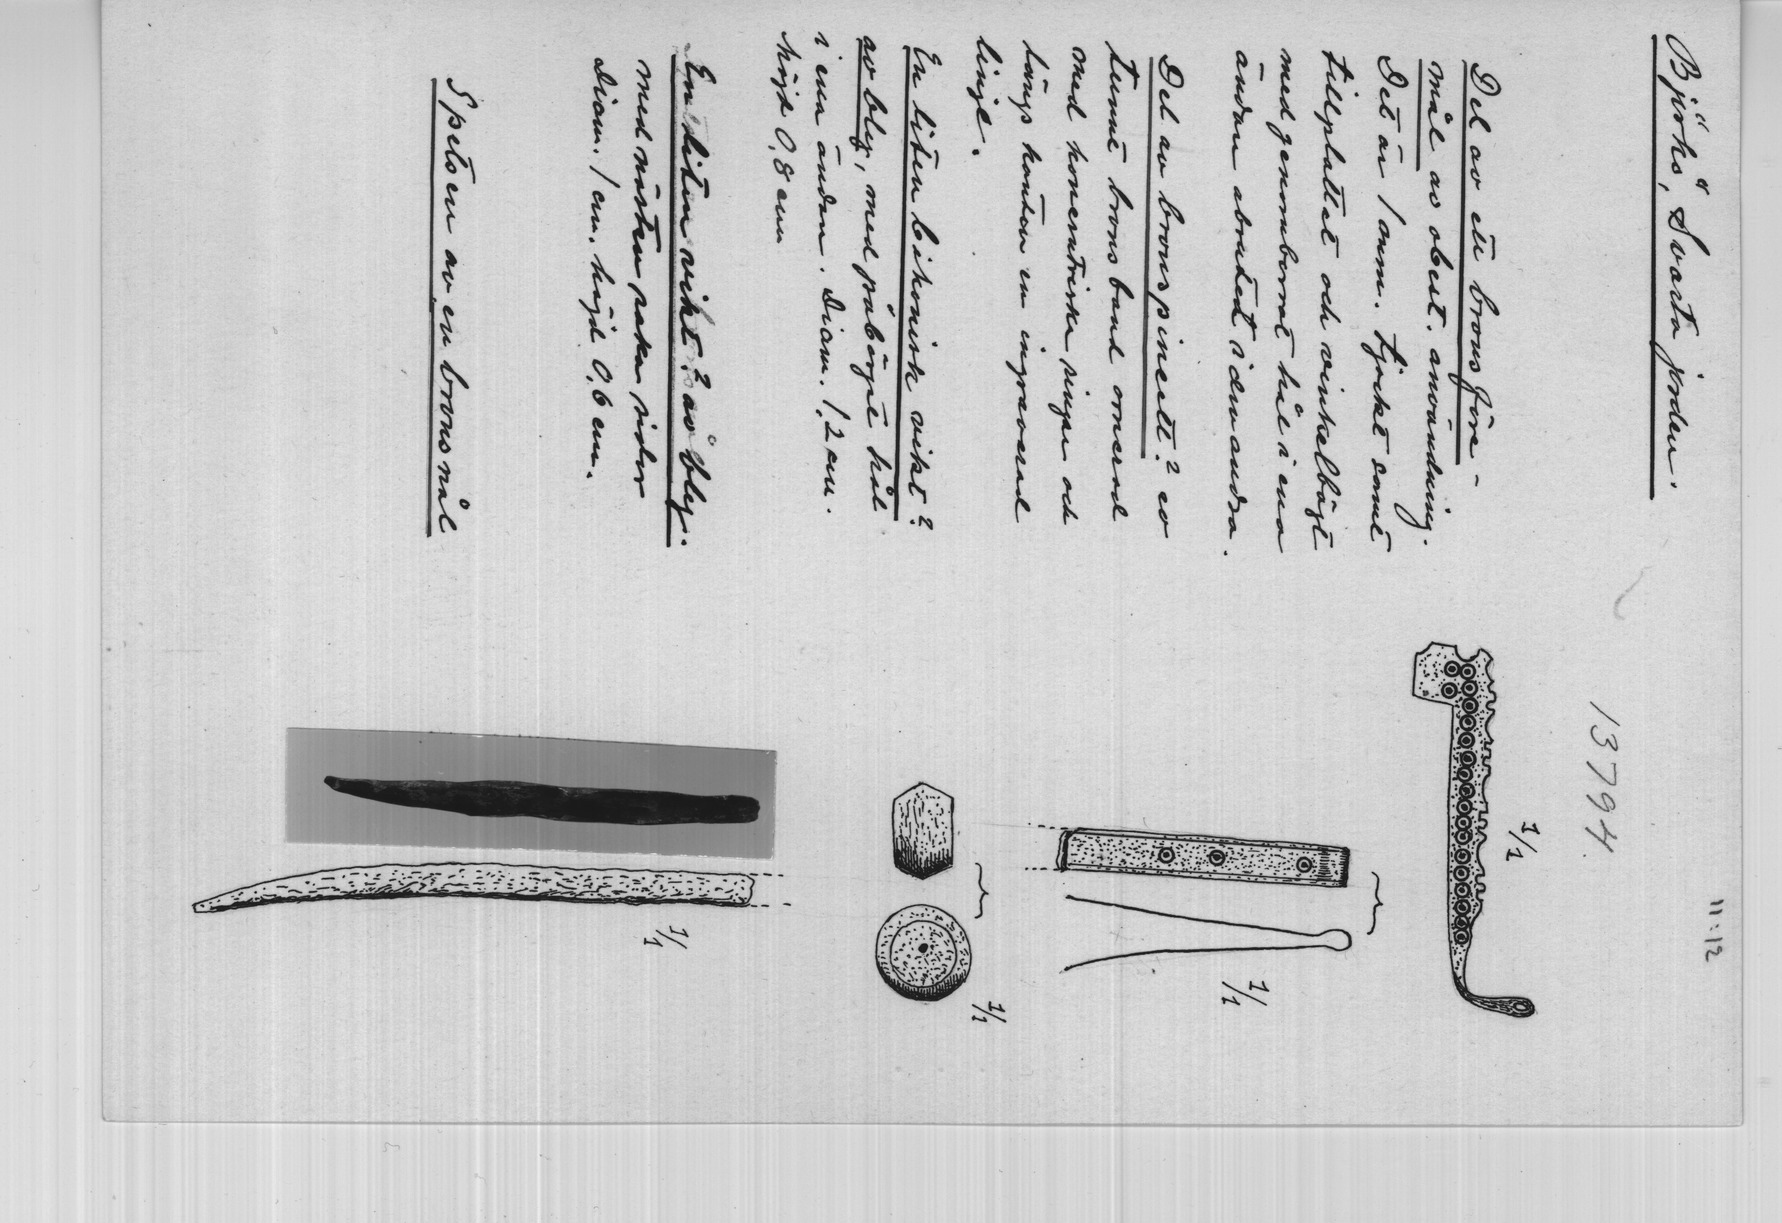 11:12
Björkö, Svarta jorden.
13794.
Del av ett bronsföre-
mål av obest. användning.
Det är 1 mm. tjockt samt
tillplattat och vinkelböjt
med genomborrat hål i ena
ändan abrutet i den andra.
1/1
Del av bronspincett? av
tunnt bronsband ornerad
med koncentriska ringar och
längs kanten en ingraverad
linje.
1/1
En liten bikonisk vikt?
av bly, med påbörjat hål
i ena ändan. Diam. 1,2 cm.
höjd 0,8 cm
1/1
En liten vikt? av bly.
med nästan raka sidor
Diam. 1 cm. höjd 0,6 cm.
Spetsen av en bronsnål
1/1